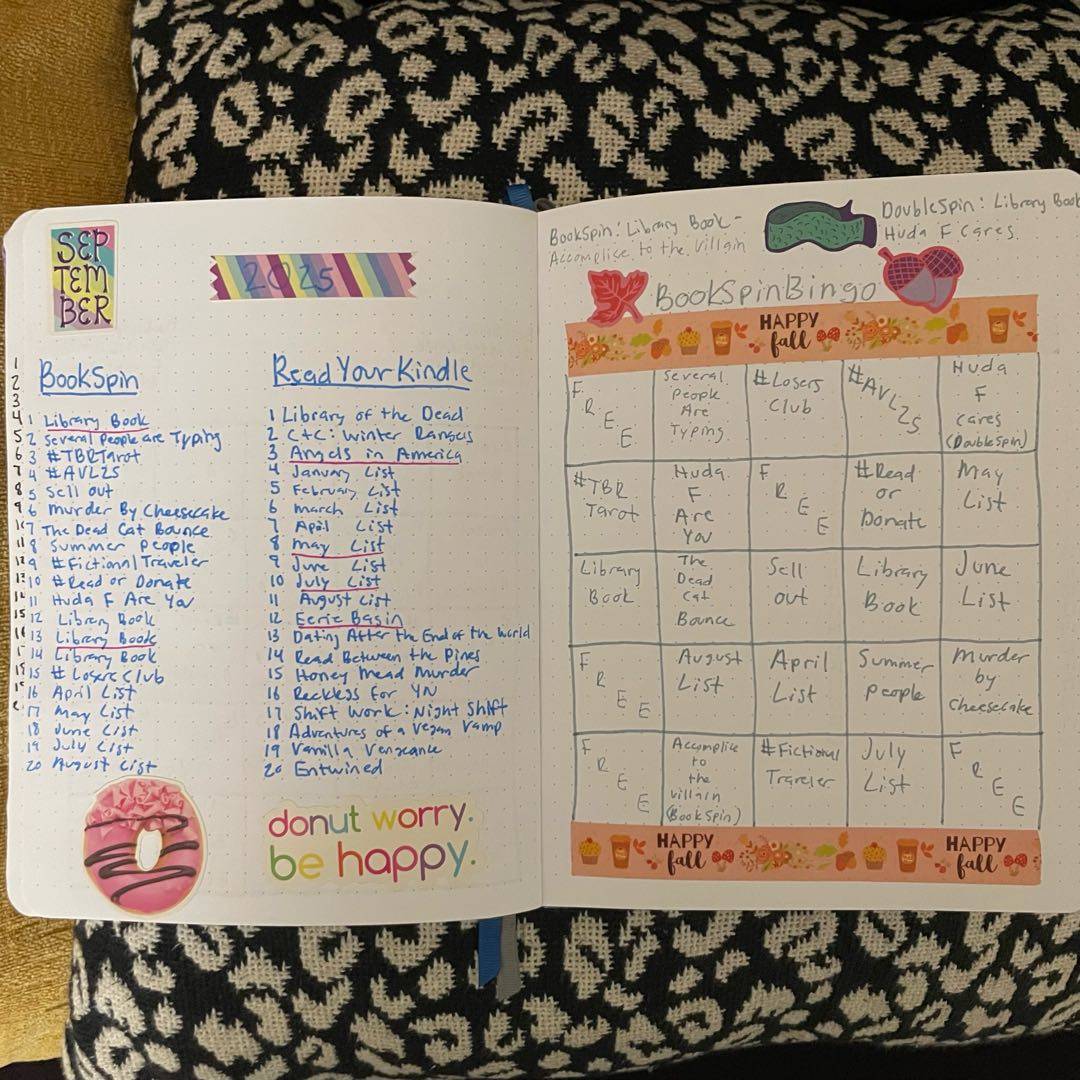 SEP
TEM
BER
2025
1
2
3
4
5
6
7
8
9
10
11
12
13
14
15
16
BookSpin
1 Library Book
2 Several People are Typing
3 #TBRTarot
4 #AVL25
5 Sell out
6 Murder By Cheesecake
7 The Dead Cat Bounce
8 Summer People
9 #Fictional Traveler
10 #Read or Donate
11 Huda F Are You
12 Library Book
13 Library Book
14 Library Book
15 #Losers Club
16 April List
17 May List
18 June List
19 July List
20 August List
Read Your Kindle
1 Library of the Dead
2 C+C: Winter
3 Angels in America
4 January List
5 February List
6 March List
7 April List
8 May List
9 June List
10 July List
11 August List
12 Eerie Basin
13 Dating After the End of the World
14 Read Between the Pines
15 Honey Mead Murder
16 Reckless for YN
17 Shift Work: Night Shift
18 Adventures of a Vegan Vamp
19 Vanilla Vengeance
20 Entwined
donut worry.
be happy.
BookSpin: Library Book -
Accomplice to the Villain
DoubleSpin: Library Book
Huda F Cares.
BookSpinBingo
HAPPY
fall
FREE
Several
People
Are
Typing
#Losers
Club
#AVL25
Huda
F
Cares
(DoubleSpin)
#TBR
Tarot
Huda
F
Are
You
FREE
#Read
or
Donate
May
List
Library
Book
The
Dead
Cat
Bounce
Sell
out
Library
Book
June
List
FREE
August
List
April
List
Summer
People
Murder
by
Cheesecake
FREE
Accomplice
to
the
Villain
(BookSpin)
#Fictional
Traveler
July
List
FREE
HAPPY
fall
HAPPY
fall